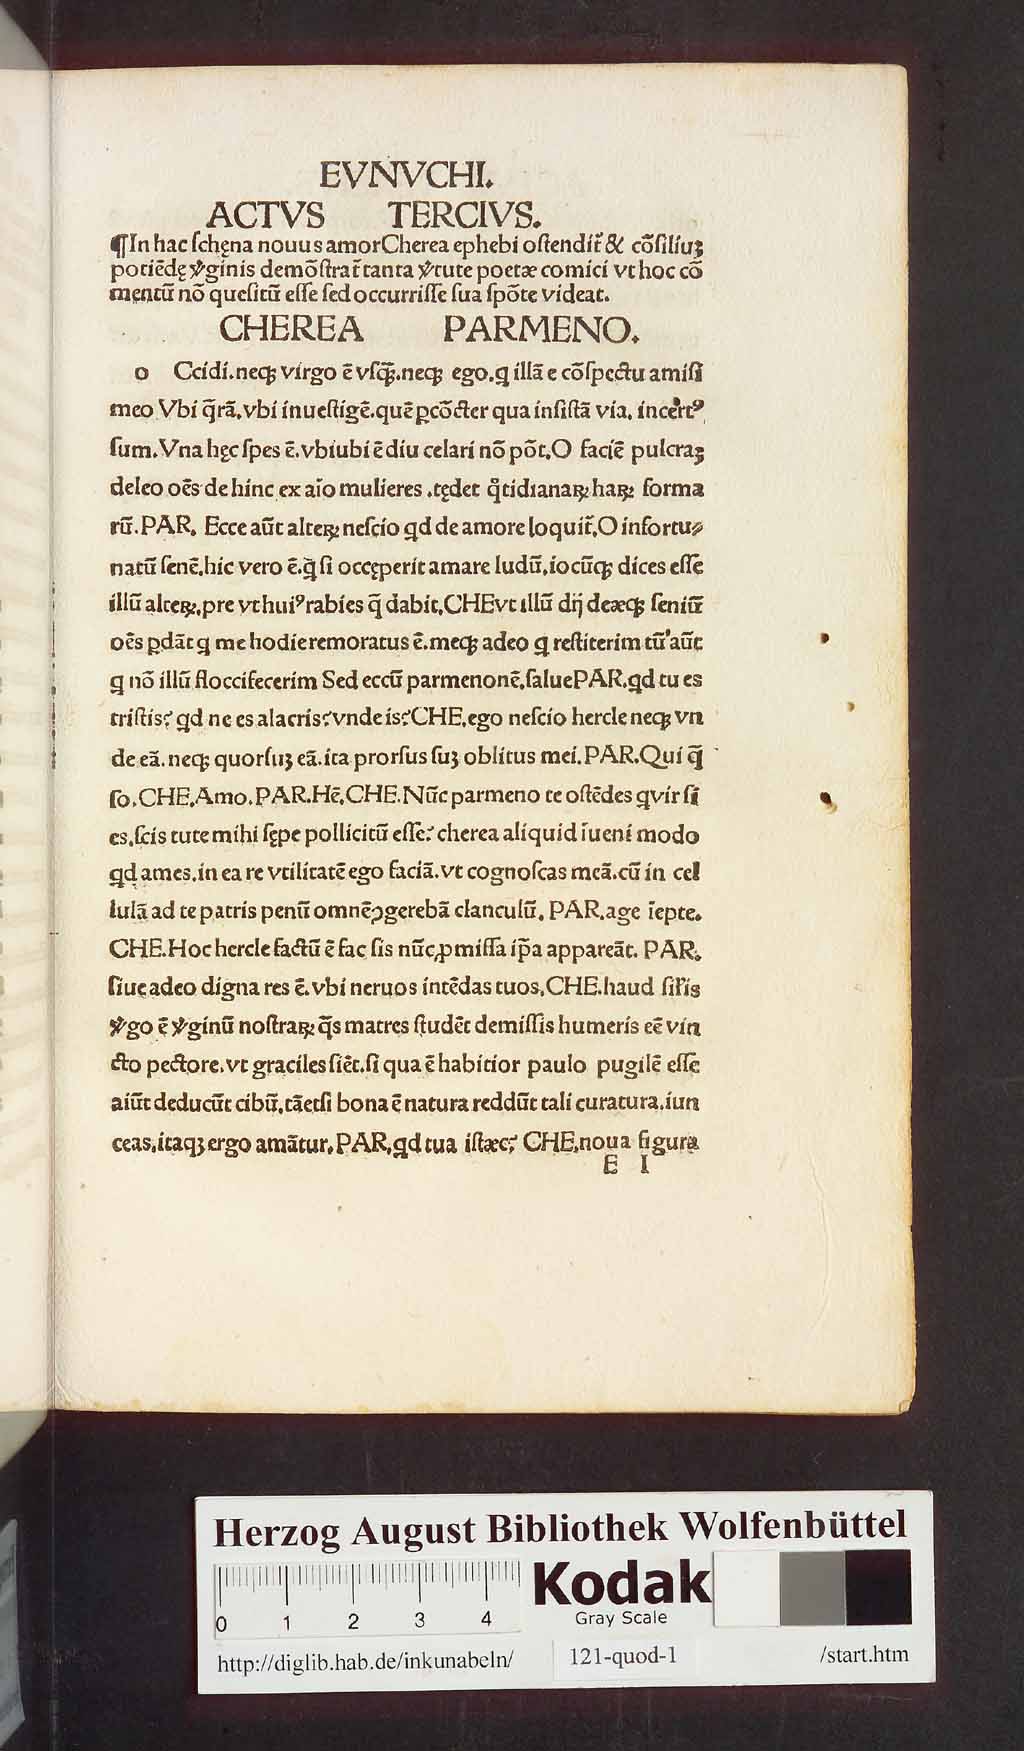 EVNVCHI.
ACTVS TERCIVS.
¶In hac schęna nouus amorCherea ephebi ostendit᷑ & cõsiliuꝫ
potiẽdę ꝟginis demõstrat᷑ tanta ꝟtute poetæ comici vt hoc cõ
mentũ nõ quesitũ esse sed occurrisse sua spõte videat.
CHEREA PARMENO.
o Ccidi.neqꝫ virgo ẽ vsq̃ꝫ.neqꝫ ego.q illã e cõspectu amisi
meo Vbi q̃rã.vbi inuestigẽ.quẽ ꝑcõcter qua insistã via. incertꝰ
sum.Vna hęc spes ẽ.vbiubi ẽ diu celari nõ põt.O faciẽ pulcraꝫ
deleo oẽs dehinc ex aĩo mulieres .tędet q̊tidianaꝝ haꝝ forma
rũ.PAR. Ecce aũt alteꝝ nescio qd de amore loquit᷑.O infortu⸗
natũ senẽ.hic vero ẽ.q̃ si occęperit amare ludũ.iocũqꝫ dices esse
illũ alteꝝ.pre vt huiꝰ rabies q̃ dabit.CHEvt illũ dij deæqꝫ seniũ
oẽs ꝑdãt q me hodie remoratus ẽ.meqꝫ adeo q restiterim tũ aũt
q nõ illũ floccifecerim Sed eccũ parmenonẽ.saluePAR.qd tu es
tristis? qd ne es alacris? vnde is?CHE.ego nescio hercle neqꝫ vn
de eã. neqꝫ quorsuꝫ eã.ita prorsus suꝫ oblitus mei.PAR.Qui q̃
so.CHE.Amo.PAR.Hẽ.CHE.Nũc parmeno te ostẽdes qvir si
es.scis tute mihi sępe pollicitũ esse? cherea aliquid ĩueni modo
qd ames.in ea re vtilitatẽ ego faciã.vt cognoscas meã.cũ in cel
lulã ad te patris penũ omnẽ ꝯgerebã clanculũ. PAR.age ĩepte.
CHE.Hoc hercle factũ ẽ fac sis nũc ꝓmissa ip̃a appareãt. PAR.
siue adeo digna res ẽ.vbi neruos intẽdas tuos.CHE.haud sil̃is
ꝟgo ẽ ꝟginũ nostraꝝ q̃s matres studẽt demissis humeris eẽ vin
cto pectore.vt graciles siẽt.si qua ẽ habitior paulo pugilẽ esse
aiũt deducũt cibũ.tãetsi bona ẽ natura reddũt tali curatura.iun
ceas.itaqꝫ ergo amãtur.PAR.qd tua istæc? CHE.noua figura
E I
Herzog August Bibliothek Wolfenbüttel
0 1 2 3 4
Kodak
Gray Scale
http://diglib.hab.de/inkunabeln/ 121-quod-1 /start.htm